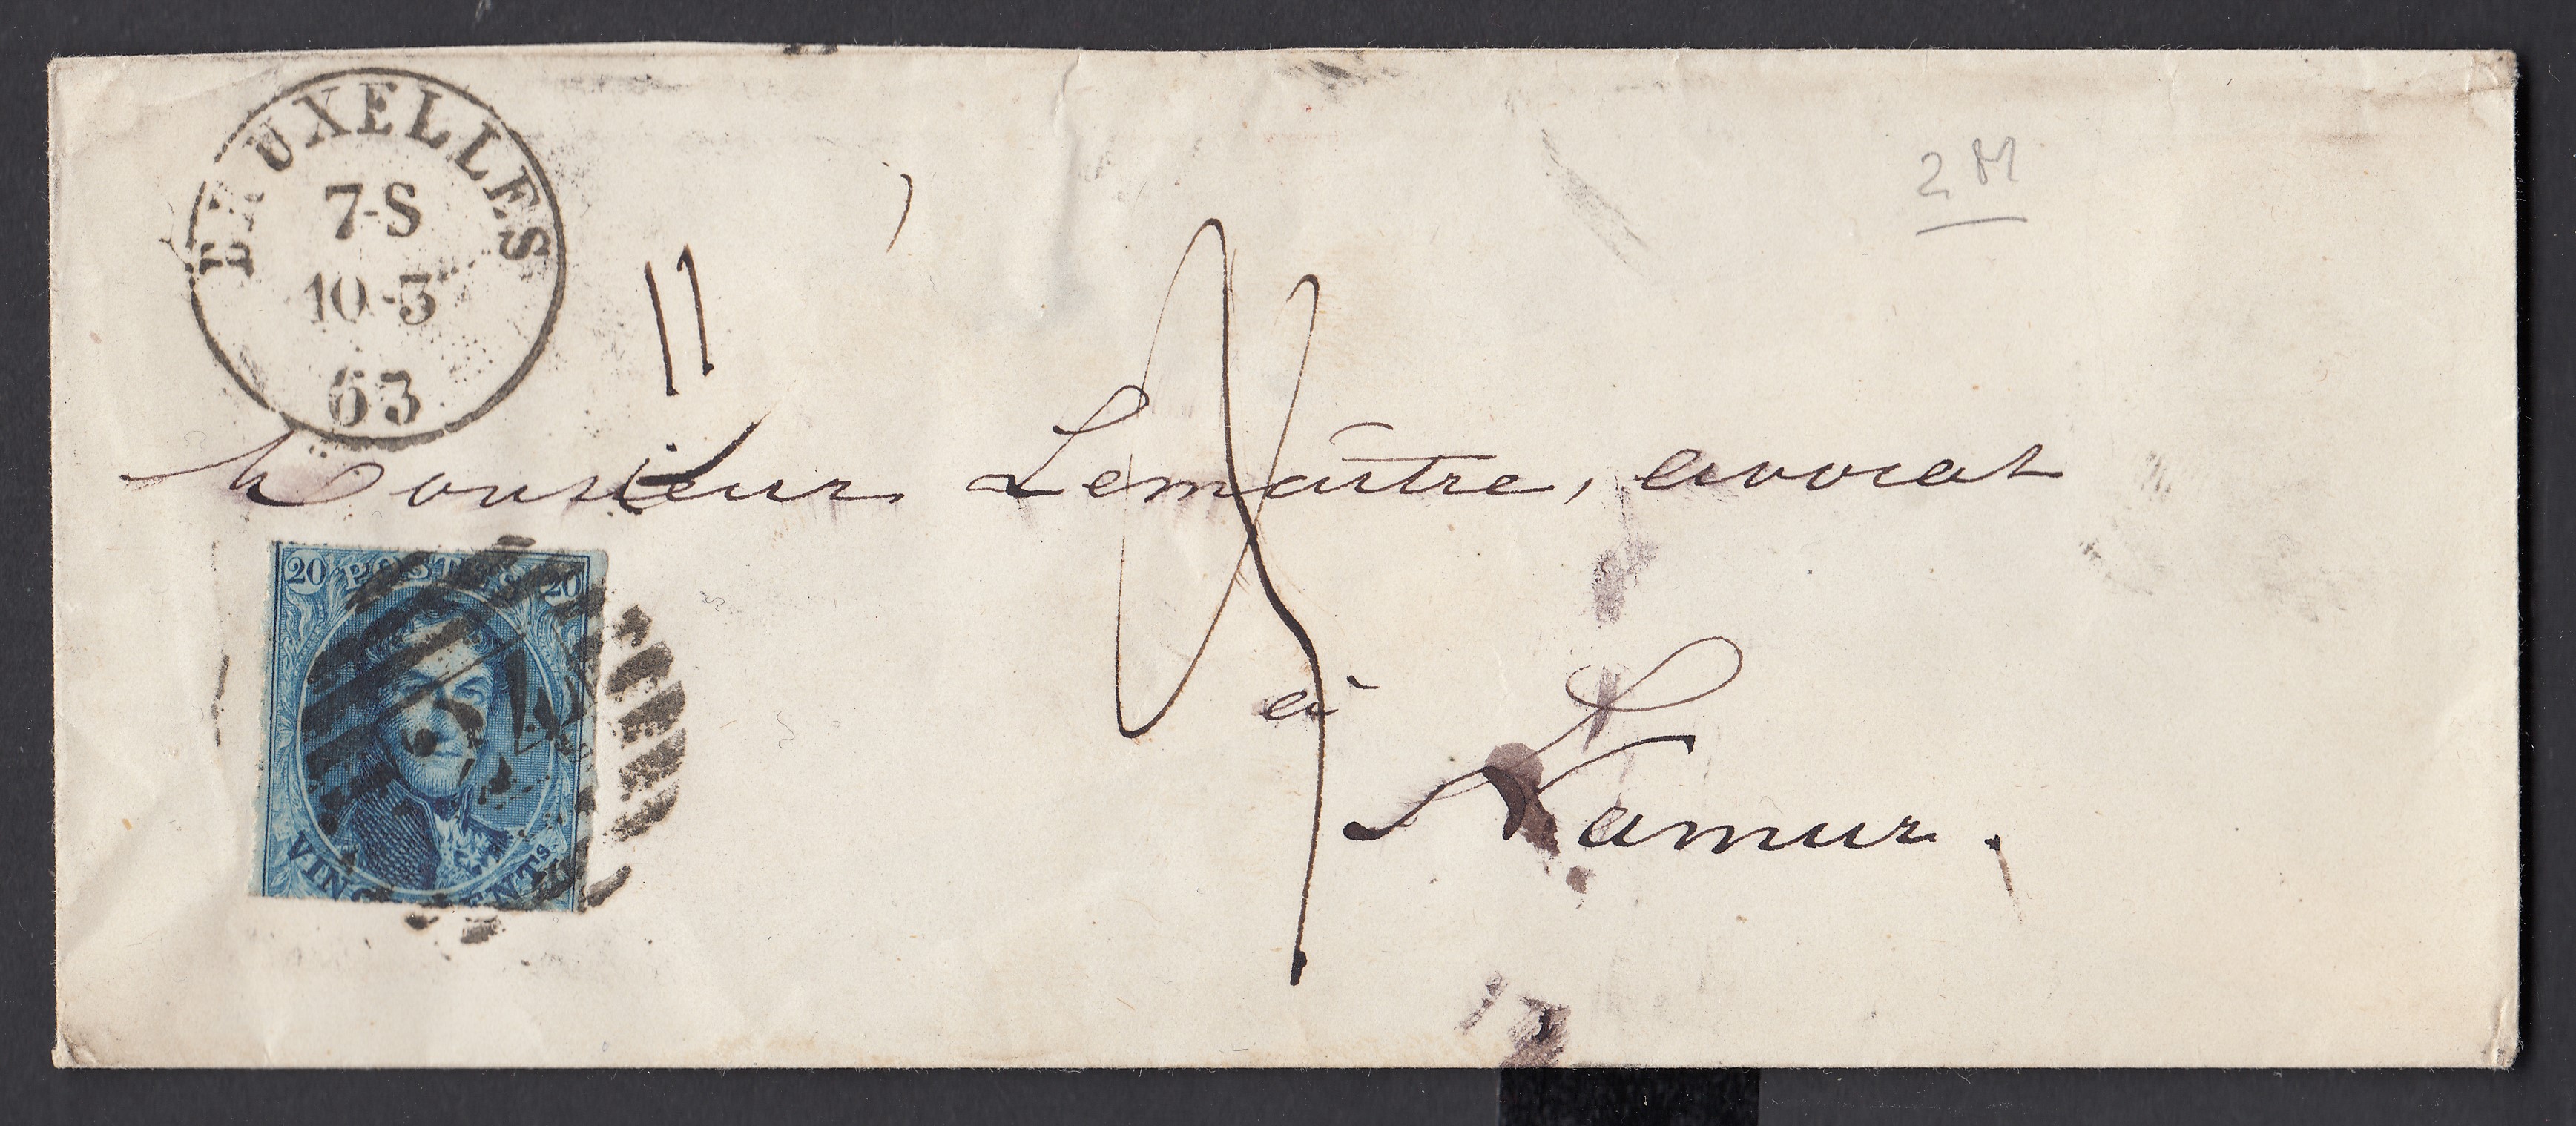 BRUXELLES
7-S
10-3
63
2 M
Monsieur Lemaître, avocat
à
Namur.
20 POSTES 20
VINGT CENTS